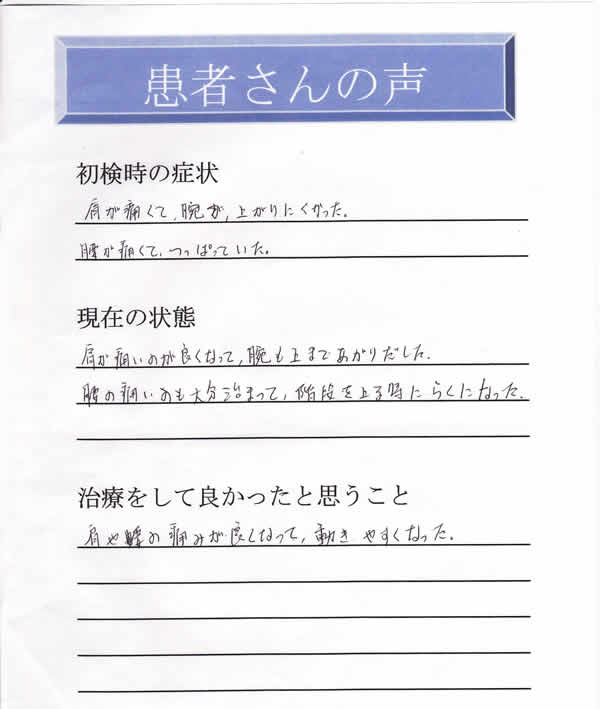 患者さんの声
初検時の症状
肩が痛くて、腕が、上がりにくかった。
腰が痛くて、つっぱっていた。
現在の状態
肩が痛いのが良くなって、腕も上まであがりだした。
腰の痛いのも大分治まって、階段を上る時にらくになった。
治療をして良かったと思うこと
肩や腰の痛みが良くなって、動きやすくなった。